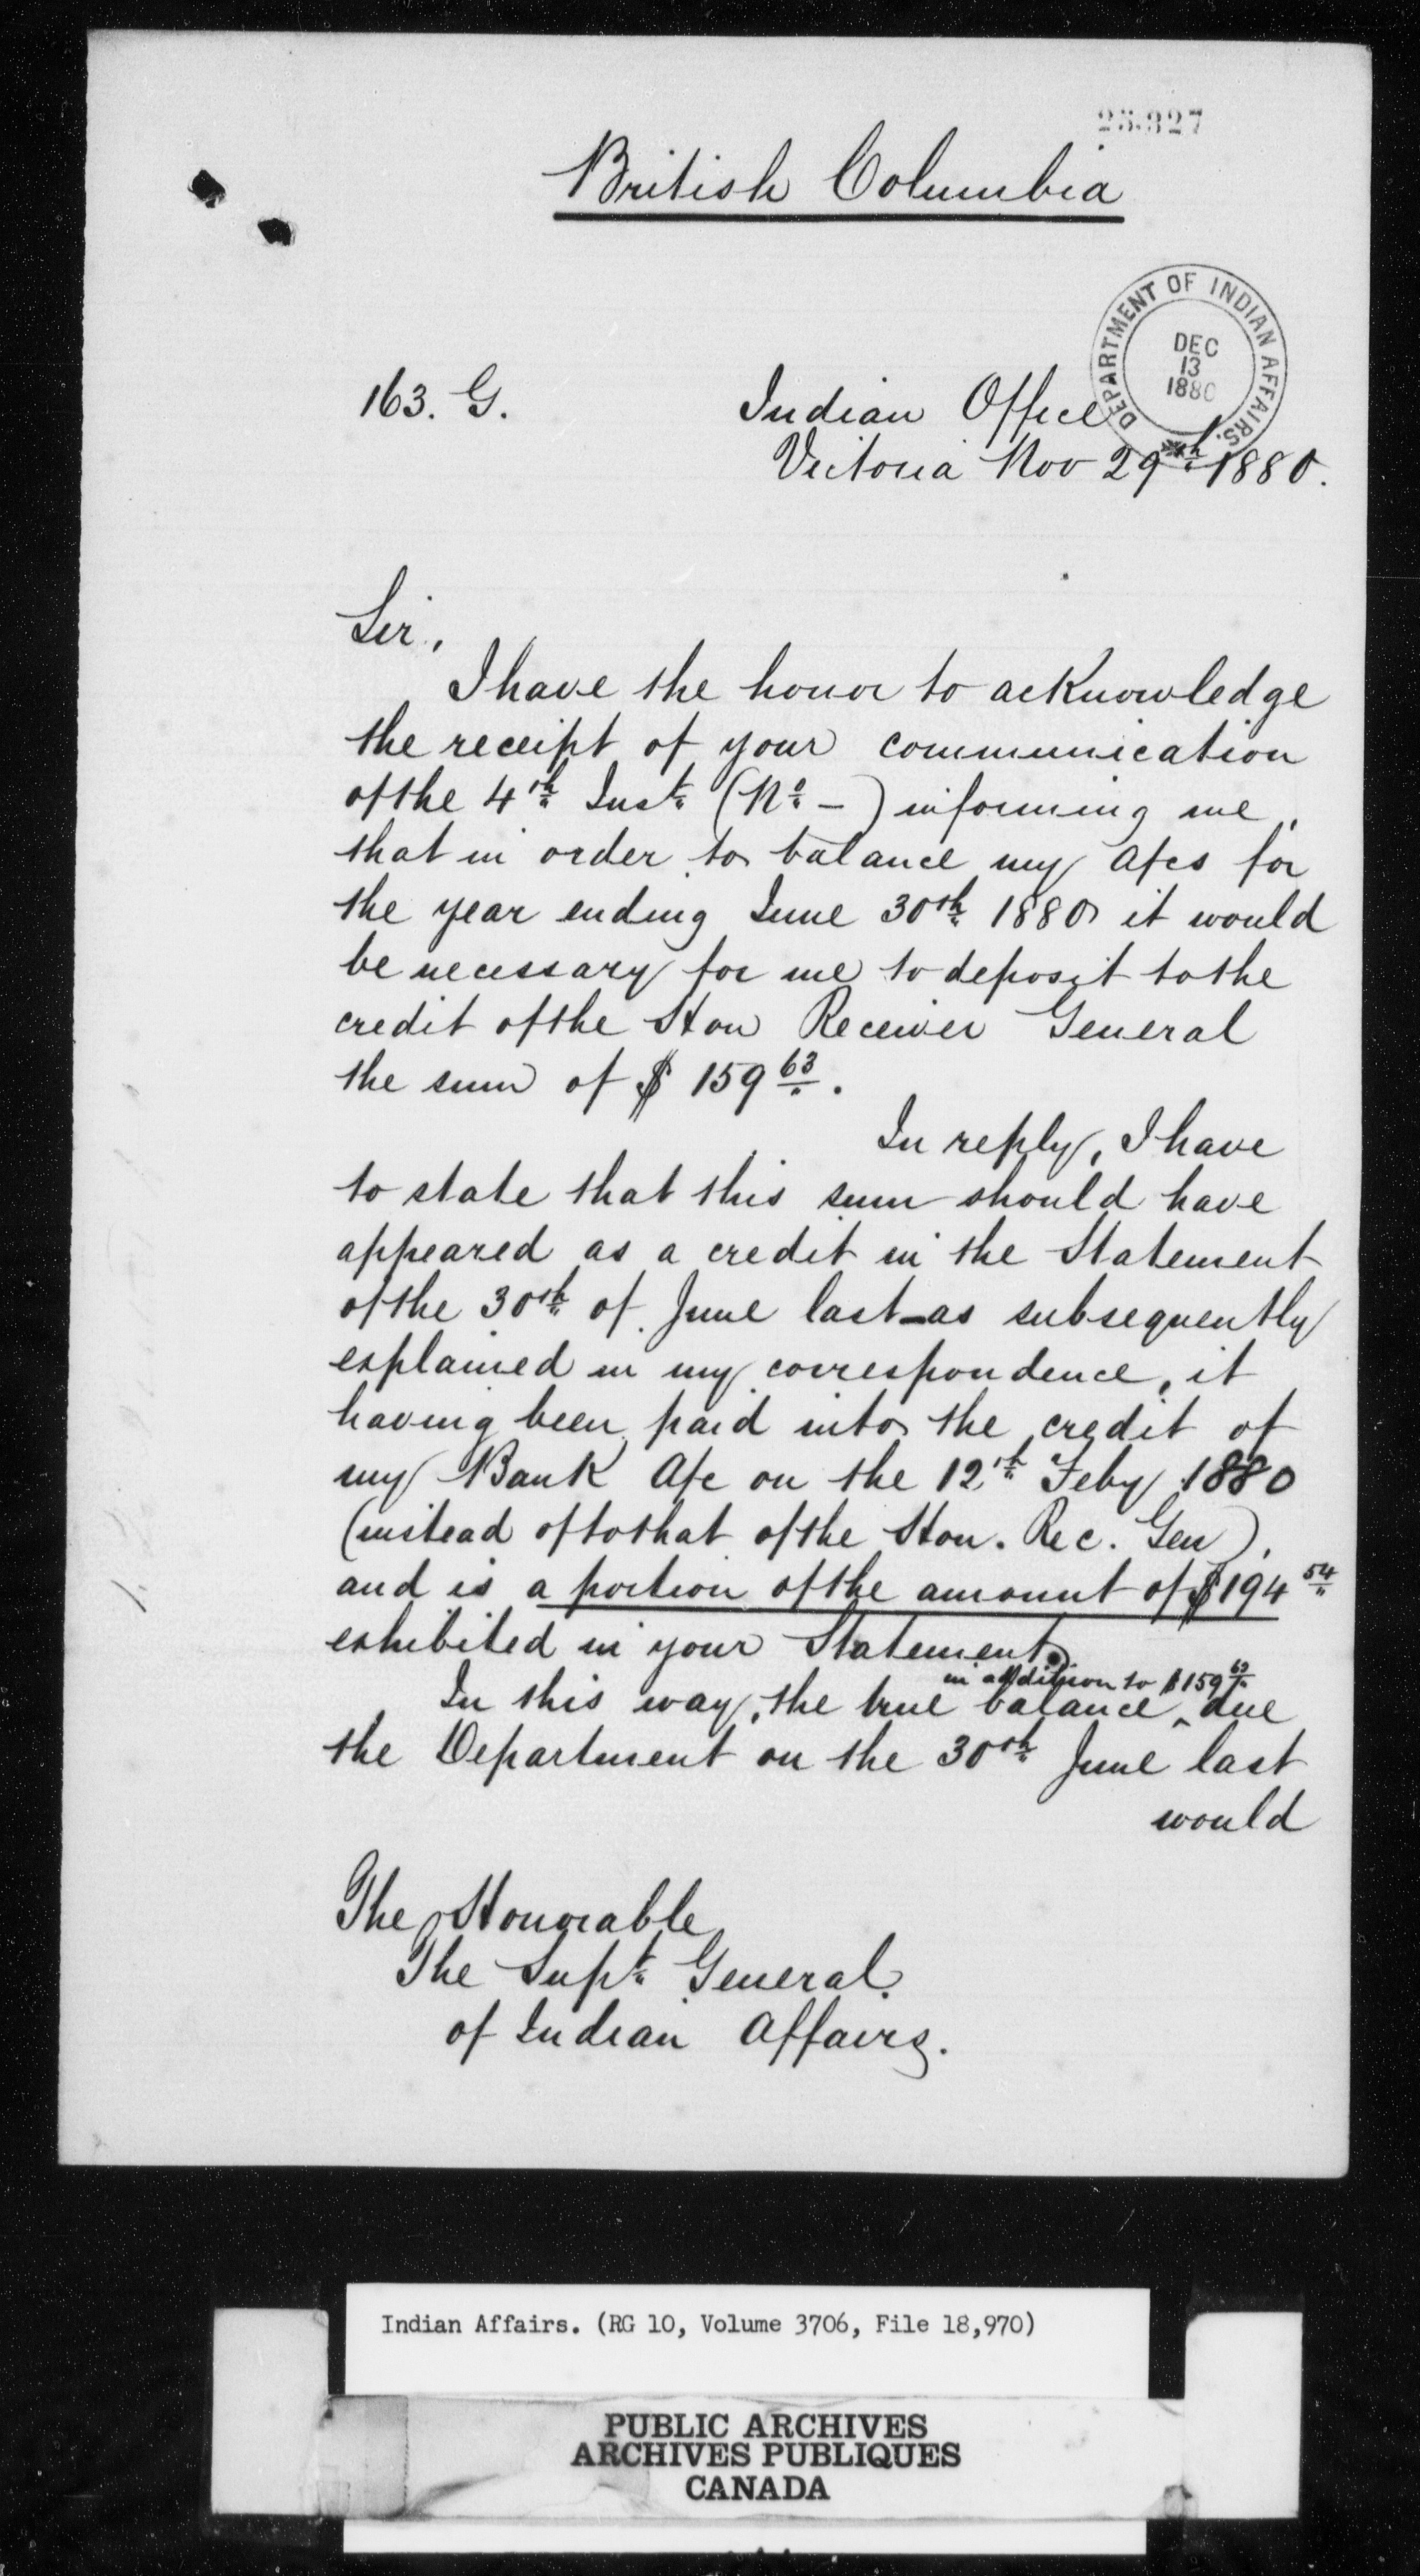 25.327
British Columbia
DEPARTMENT OF INDIAN AFFAIRS.
DEC
13
1880
163. G.
Indian Office
Victoria Nov 29th 1880.
Sir,
I have the honor to acknowledge
the receipt of your communication
of the 4th Inst (No –) informing me,
that in order to balance my a/cs for
the year ending June 30th 1880 it would
be necessary for me to deposit to the
credit of the Hon Receiver General
the sum of $159 63.
In reply, I have
to state that this sum should have
appeared as a credit in the Statement
of the 30th of June last - as subsequently
explained in my correspondence, it
having been paid into the credit of
my Bank A/c on the 12th Feby 1880
(instead of to that of the Hon. Rec. Gen),
and is a portion of the amount of $194 54
exhibited in your Statement.
in addition to $159 63
In this way, the true balance ‸ due
the Department on the 30th June last
would
The Honorable
The Supt General
of Indian Affairs.
Indian Affairs. (RG 10, Volume 3706, File 18,970)
PUBLIC ARCHIVES
ARCHIVES PUBLIQUES
CANADA